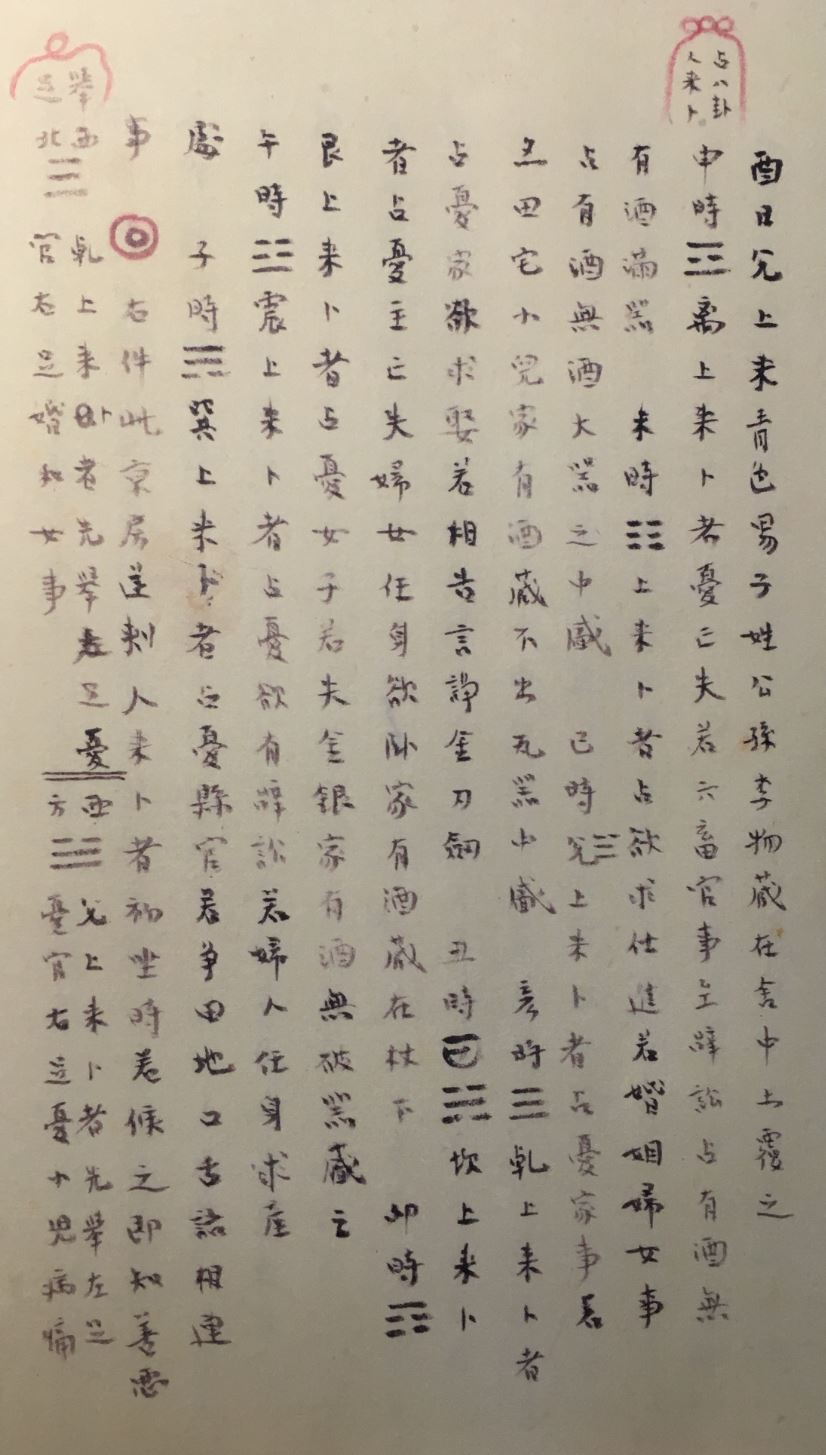 占八卦
人来卜
酉日兊上来青色男子姓公孫李物蔵在舎中土覆之
申時☲離上来卜者憂亡失若六畜官事辞訟占有酒無
有酒滿噐　未時☷上来卜者占欲求仕進若婚姻婦女事
占有酒無酒大噐之中盛　巳時兊☱上来卜者占憂家事若
田宅小兒家有酒蔵不出瓦噐中盛　亥時☰乹上来卜者
占憂家欲求娶若相告言諍金刀釼　丑時☵坎上来卜
者占憂主亡失婦女任身欲卧家有酒蔵在杖下　卯時☳
艮上来卜者占憂女子若失金銀家有酒無破噐盛之
午時☳震上来卜者占憂欲有辞訟若婦人任身求産
處　子時☴巽上来卜者占憂縣官若争田地口舌諮相連
事　◎　右件此京房逆刾人来卜者初坐時若候之即知善悪
舉
足
西
北
☰
乹上来卜者先舉左足憂
官右足婚和女事
西
方
☱
兊上来卜者先舉左足
憂官右足憂小児病痛